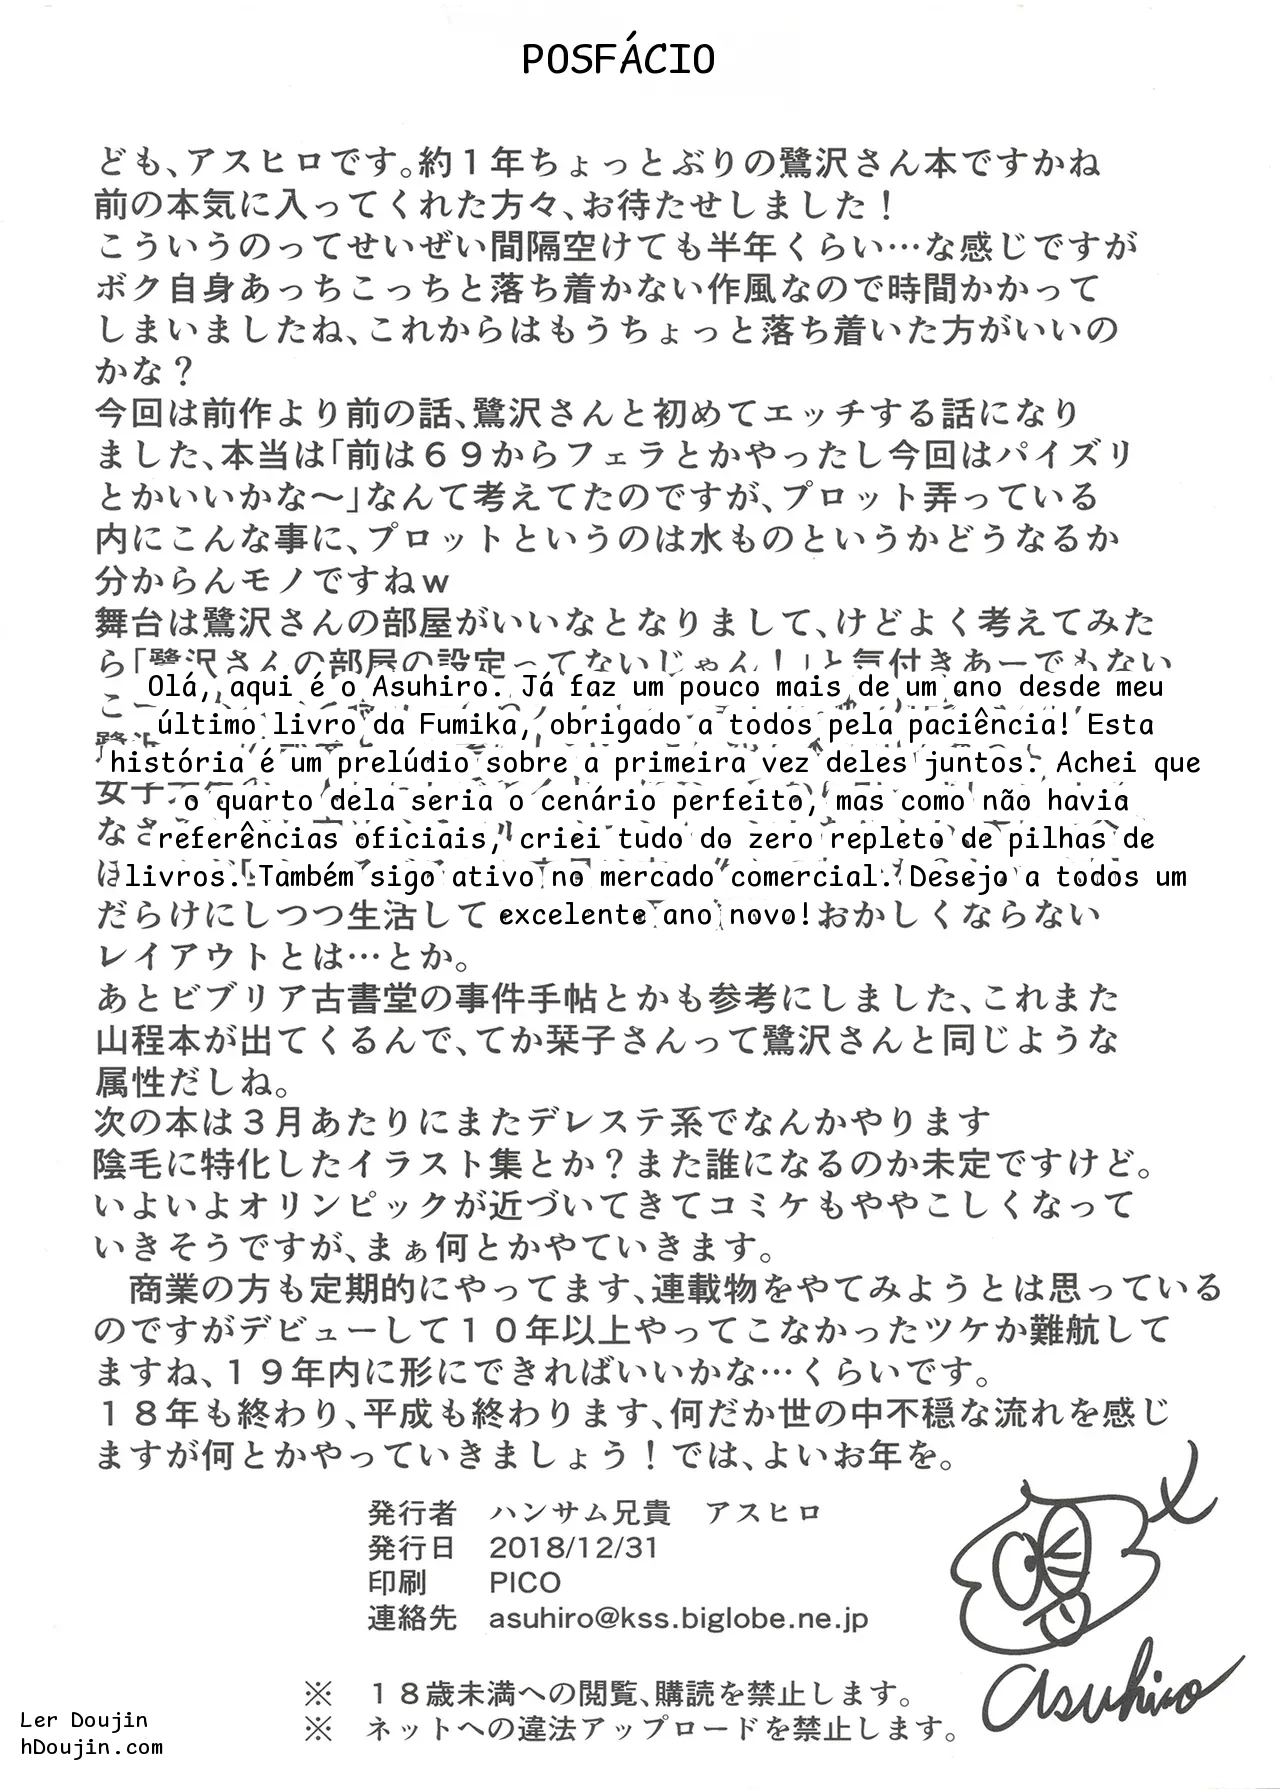 POSFÁCIO
ども、アスヒロです。約１年ちょっとぶりの鷺沢さん本ですかね
前の本気に入ってくれた方々、お待たせしました！
こういうのってせいぜい間隔空けても半年くらい…な感じですが
ボク自身あっちこっちと落ち着かない作風なので時間かかって
しまいましたね、これからはもうちょっと落ち着いた方がいいの
かな？
今回は前作より前の話、鷺沢さんと初めてエッチする話になり
ました、本当は「前は６９からフェラとかやったし今回はパイズリ
とかいいかな～」なんて考えてたのですが、プロット弄っている
内にこんな事に、プロットというのは水ものというかどうなるか
分からんモノですねｗ
舞台は鷺沢さんの部屋がいいなとなりまして、けどよく考えてみた
ら「鷺沢さんの部屋の設定ってないじゃん！」と気付きあーでもない
Olá, aqui é o Asuhiro. Já faz um pouco mais de um ano desde meu
último livro da Fumika, obrigado a todos pela paciência! Esta
história é um prelúdio sobre a primeira vez deles juntos. Achei que
o quarto dela seria o cenário perfeito, mas como não havia
referências oficiais, criei tudo do zero repleto de pilhas de
livros. Também sigo ativo no mercado comercial. Desejo a todos um
だらけにしつつ生活して excelente ano novo! おかしくならない
レイアウトとは…とか。
あとビブリア古書堂の事件手帖とかも参考にしました、これまた
山程本が出てくるんで、てか栞子さんって鷺沢さんと同じような
属性だしね。
次の本は３月あたりにまたデレステ系でなんかやります
陰毛に特化したイラスト集とか？また誰になるのか未定ですけど。
いよいよオリンピックが近づいてきてコミケもややこしくなって
いきそうですが、まぁ何とかやていきます。
商業の方も定期的にやってます、連載物をやてみようとは思っている
のですがデビューして１０年以上やってこなかったツケか難航して
ますね、１９年内に形にできればいいかな…くらいです。
１８年も終わり、平成も終わります、何だか世の中不穏な流れを感じ
ますが何とかやっていきましょう！では、よいお年を。
発行者 ハンサム兄貴 アスヒロ
発行日 2018/12/31
印刷 PICO
連絡先 asuhiro@kss.biglobe.ne.jp
asuhiro
※ １８歳未満への閲覧、購読を禁止します。
※ ネットへの違法アップロードを禁止します。
Ler Doujin
hDoujin.com